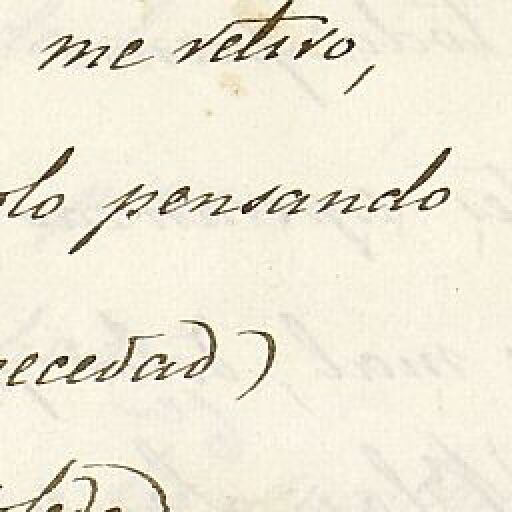 me retiro,
olo pensando
necedad)